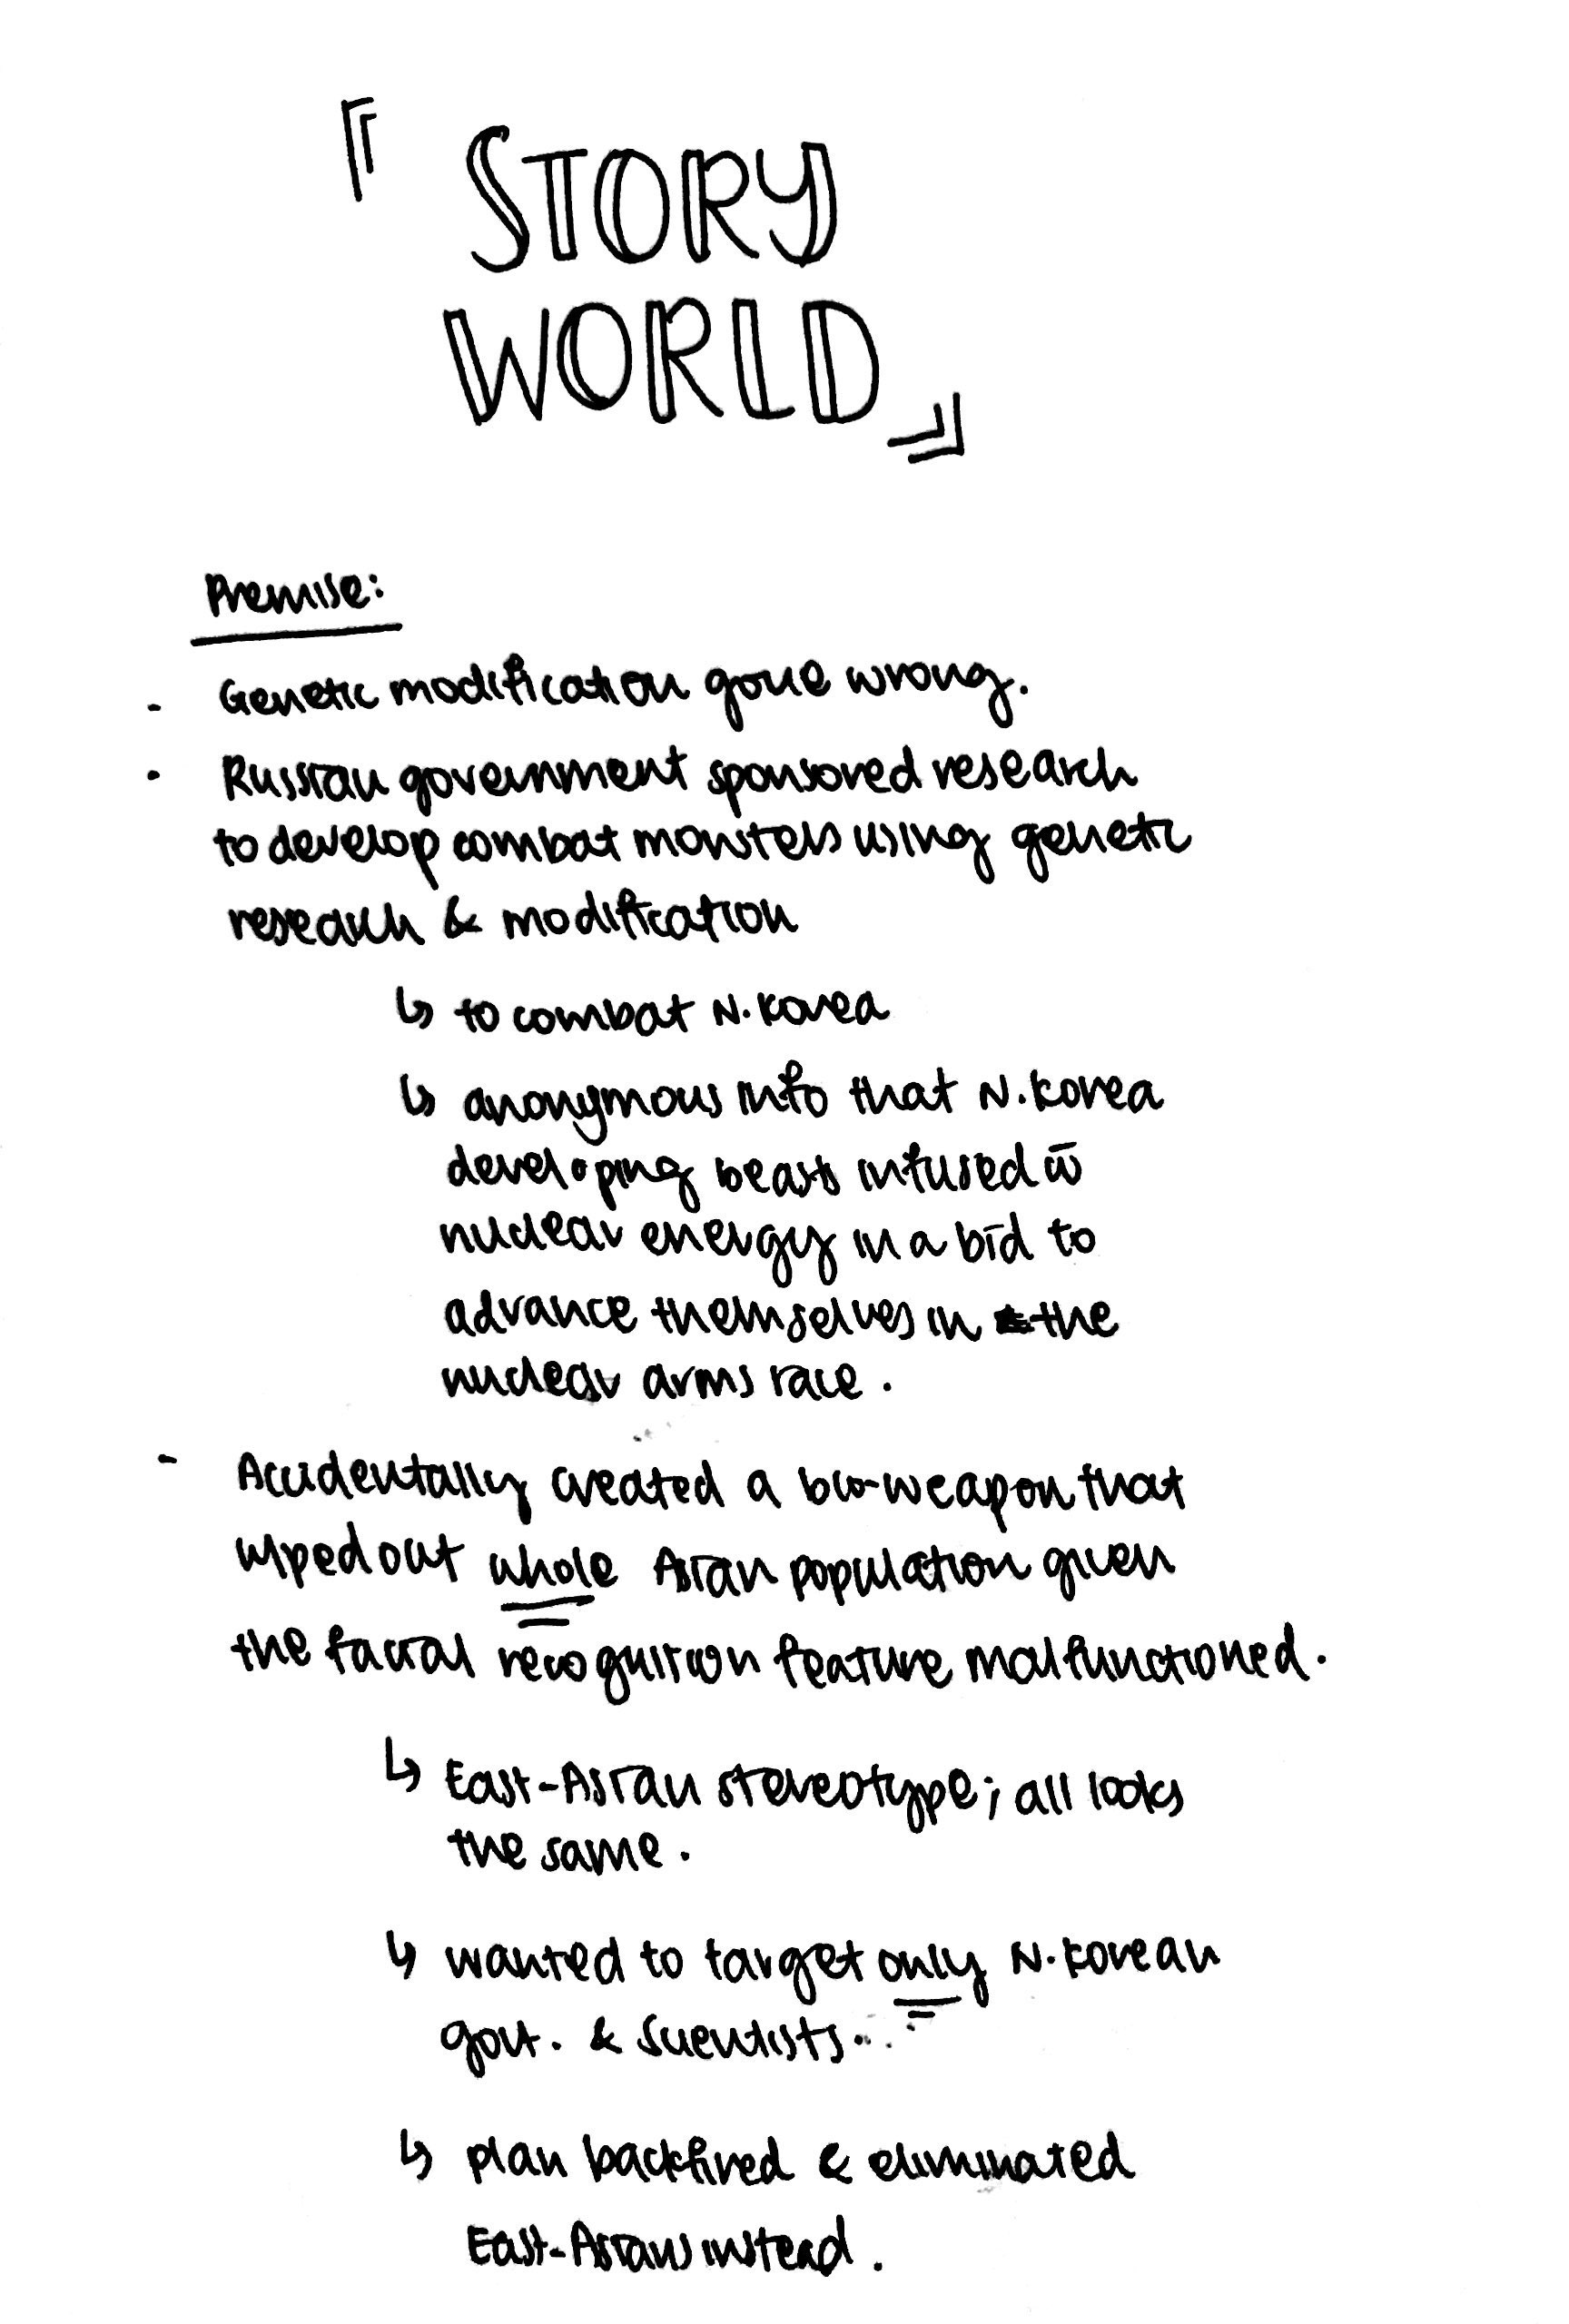 『 STORY
WORLD 』
Premise:
- Genetic modification gone wrong.
- Russian government sponsored research
to develop combat monsters using genetic
research & modification
↳ to combat N. Korea
↳ anonymous info that N. Korea
developing beasts infused w̄
nuclear energy in a bid to
advance themselves in the
nuclear arms race.
- Accidentally created a bio-weapon that
wiped out whole Asian population given
the facial recognition feature malfunctioned.
↳ East-Asian stereotype; all looks
the same.
↳ wanted to target only N. Korean
govt. & scientists.
↳ plan backfired & eliminated
East-Asians instead.